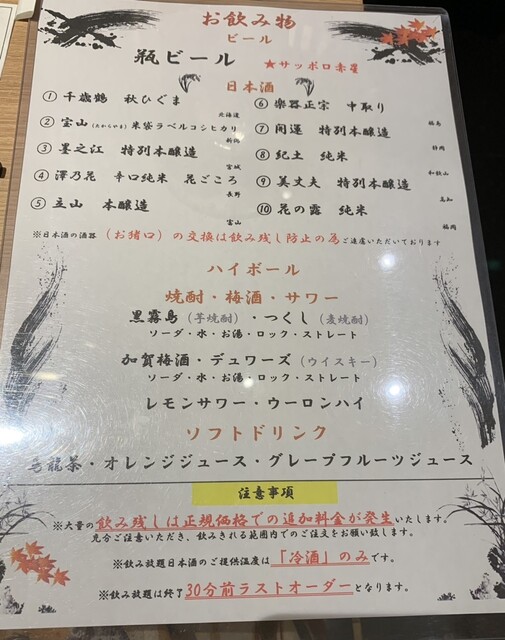 お飲み物
ビール
瓶ビール ★サッポロ赤星
日本酒
① 千歳鶴 秋ひぐま
北海道
② 宝山(たからやま)米袋ラベルコシヒカリ
新潟
③ 墨之江 特別本醸造
宮城
④ 澤乃花 辛口純米 花ごころ
長野
⑤ 立山 本醸造
富山
⑥ 楽器正宗 中取り
福島
⑦ 開運 特別本醸造
静岡
⑧ 紀土 純米
和歌山
⑨ 美丈夫 特別本醸造
高知
⑩ 花の露 純米
福岡
※日本酒の酒器(お猪口)の交換は飲み残し防止の為ご遠慮いただいております
ハイボール
焼酎・梅酒・サワー
黒霧島(芋焼酎)・つくし(麦焼酎)
ソーダ・水・お湯・ロック・ストレート
加賀梅酒・デュワーズ(ウイスキー)
ソーダ・水・お湯・ロック・ストレート
レモンサワー・ウーロンハイ
ソフトドリンク
烏龍茶・オレンジジュース・グレープフルーツジュース
注意事項
※大量の飲み残しは正規価格での追加料金が発生いたします。
充分ご注意いただき、飲みきれる範囲内でのご注文をお願い致します。
※飲み放題日本酒のご提供温度は「冷酒」のみです。
※飲み放題は終了30分前ラストオーダーとなります。